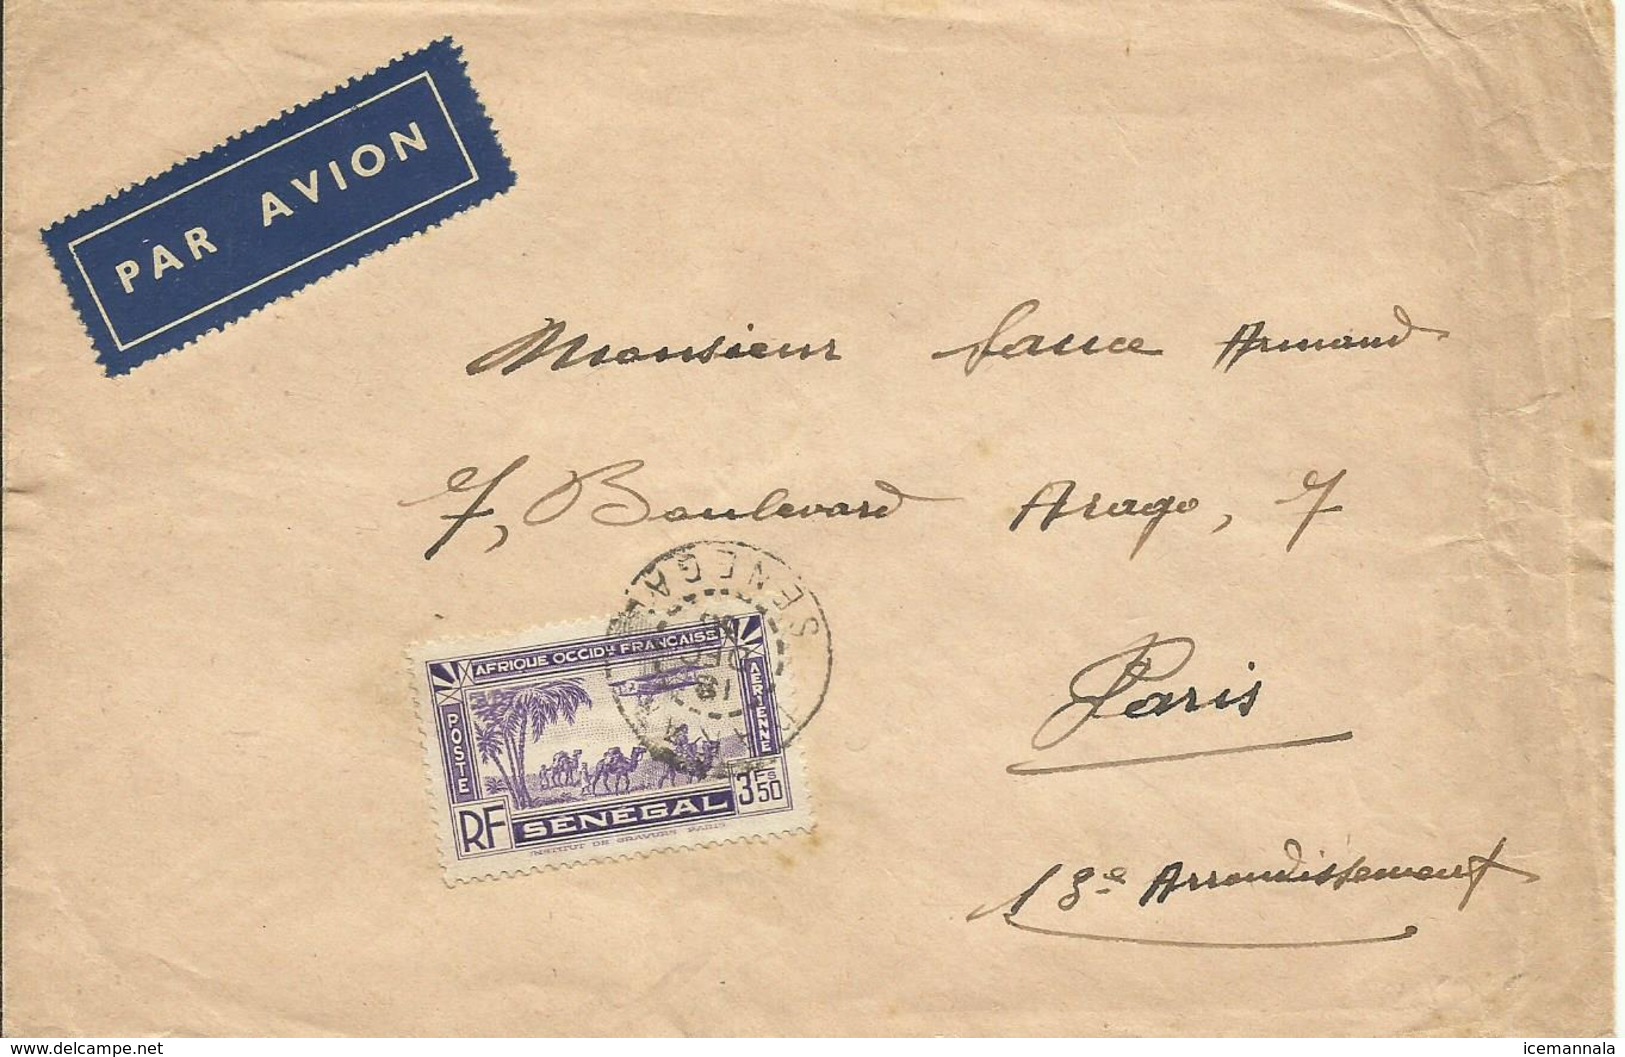 PAR AVION
Monsieur Armand
7, Boulevard Arago, 7
Paris
13e Arrondissement
SENEGAL
AFRIQUE OCCIDle FRANÇAISE
POSTE
AÉRIENNE
3Fs50
RF
SÉNÉGAL
INSTITUT DE GRAVURE PARIS
www.delcampe.net
icemannala